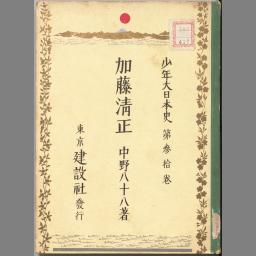 少年大日本史 第参拾巻
加藤清正 中野八十八著
東京 建設社 發行